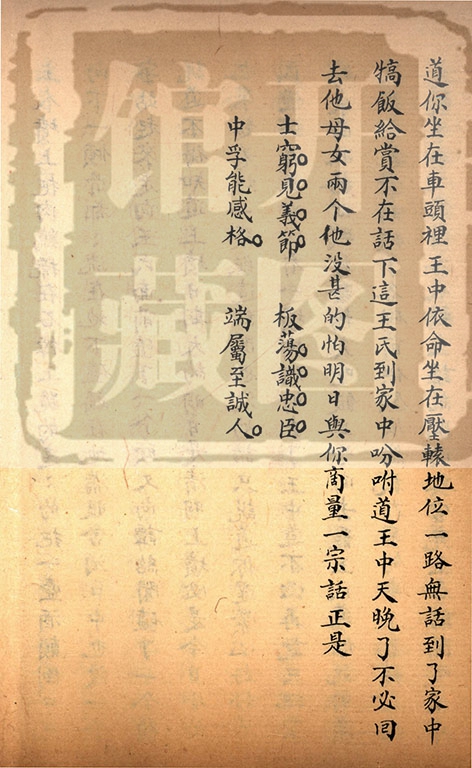 道你坐在車頭裡王中依命坐在壓轅地位一路無話到了家中
犒飯給賞不在話下這王氏到家中吩咐道王中天晚了不必回
去他母女兩个他没甚的怕明日與你商量一宗話正是
士窮見義節 板蕩識忠臣
中孚能感格 端屬至誠人